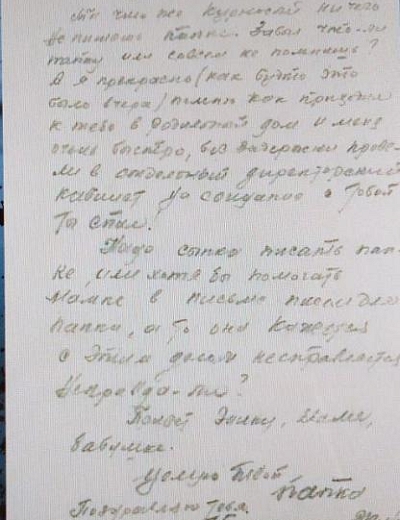 что же Курносый ничего
не пишешь папке. Забыл что-ли
папку или совсем не помнишь?
А я прекрасно (как будто это
было вчера) помню как приехал
к тебе в родильный дом и меня
очень быстро, без задержки прове-
ли в отдельный директорский
кабинет на свидание с тобой
Ты спал.
Надо сынка писать пап-
ке, или хотя бы помогать
мамке в письме писать для
папки, а то она кажется
с этим делом несправляется
Неправда-ли?
Привет Энику, маме,
бабушке.
Целую твой
папка
Поздравляю тебя.